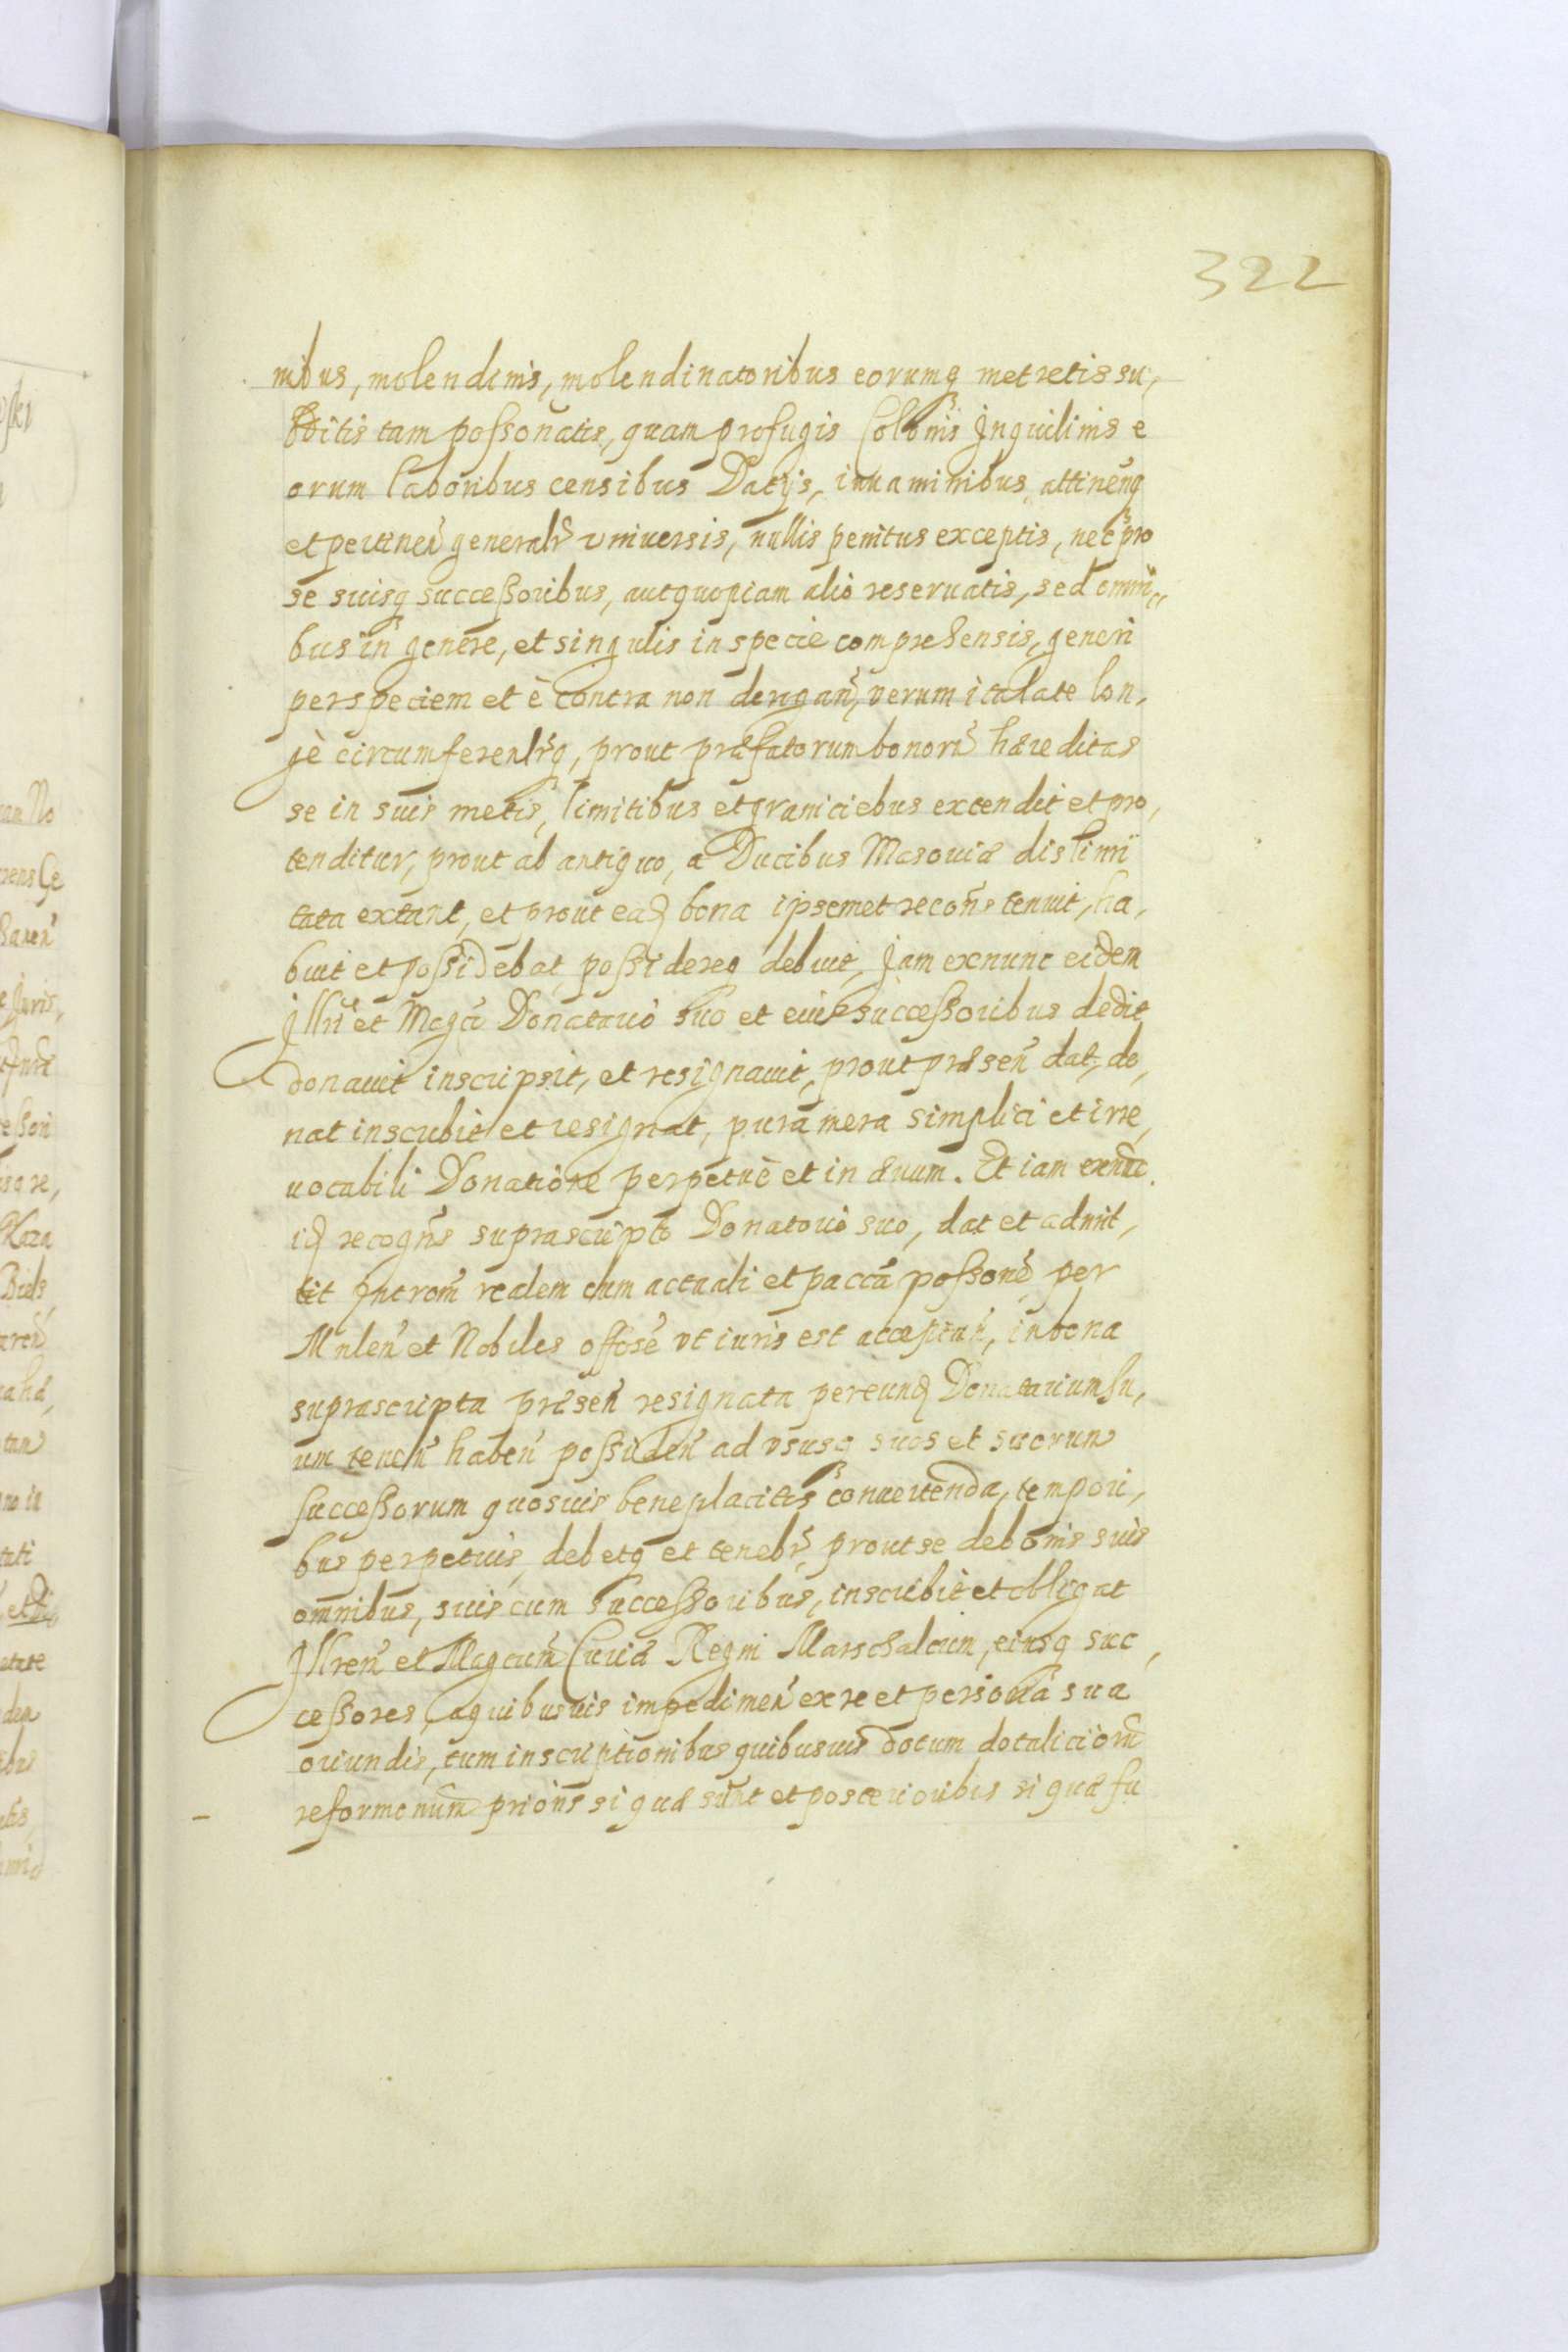 322
nibus, molendinis, molendinatoribus eorumq metretis su,
bditis tam possonatis, quam profugis Colonis Inquilinis e
orum laboribus censibus Datijs, iuuaminibus, attineñq
et pertineñ generalr vniuersis, nullis penitus exceptis, nec pro
se suisq successoribus, aut quopiam alio reseruatis, sed omni,,
bus in genere, et singulis in specie comprehensis, generi
per speciem et è contra non derigañ, verum ita late lon,
gè circumferenlrq, prout præfatorum bonorũ hæreditas
se in suis metis, limitibus et graniciebus extendit et pro,
tenditur, prout ab antiquo, a Ducibus Masouiæ dislimi
tata extant, et prout eadẽ bona ipsemet recoñs tenuit, ha,
buit et possidebat possidereq debuit, Jam exnunc eidem
Jllri et Magco Donatario suo et eius successoribus dedit
donauit inscripsit, et resignauit, prout præseñ dat, do,
nat inscribit et resignat, pura mera simplici et irre,
uocabili Donatione perpetuè et in æuum. Et iam exnũc
idẽ recogñs suprascripto Donatorio suo, dat et admit,
tit Introm̃ realem cum actuali et pacca possonẽ per
Mnleñ et Nobiles offose vt iuris est acceptañ, in bona
suprascripta præseñ resignata per eundẽ Donatarium su,
um teneñ habeñ possideñ ad vsusq suos et suorum
successorum quosuis beneplacitis conuertenda, tempori,
bus perpetuis, debetq et tenebr, prout se de bonis suis
omnibus, suis cum successoribus, inscribit et obligat
Jllreñ et Magcum Curiæ Regni Marschalcum, eiusq suc,
cessores, a quibusuis impedimeñ ex re et persona sua
oriundis, tum inscriptionibus quibusuis dotum dotaliciorũ
reformenũm prioñs si quæ sunt et posterioribus si quæ fu